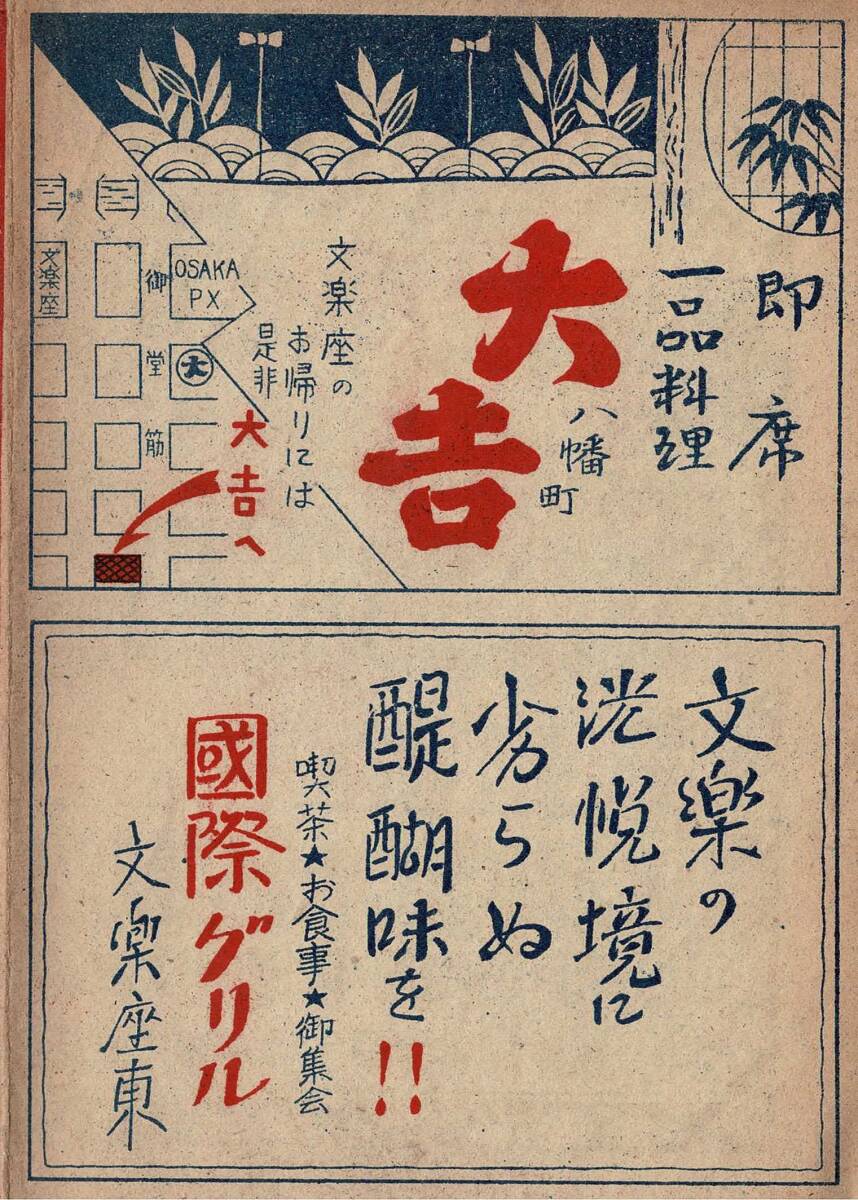 即席
一品料理
大吉
八幡町
文楽座の
お帰りには
是非
大吉へ
OSAKA
PX
大
御堂筋
文楽座
文樂の
法悦境に
劣らぬ
醍醐味を!!
喫茶★お食事★御集会
國際グリル
文樂座東